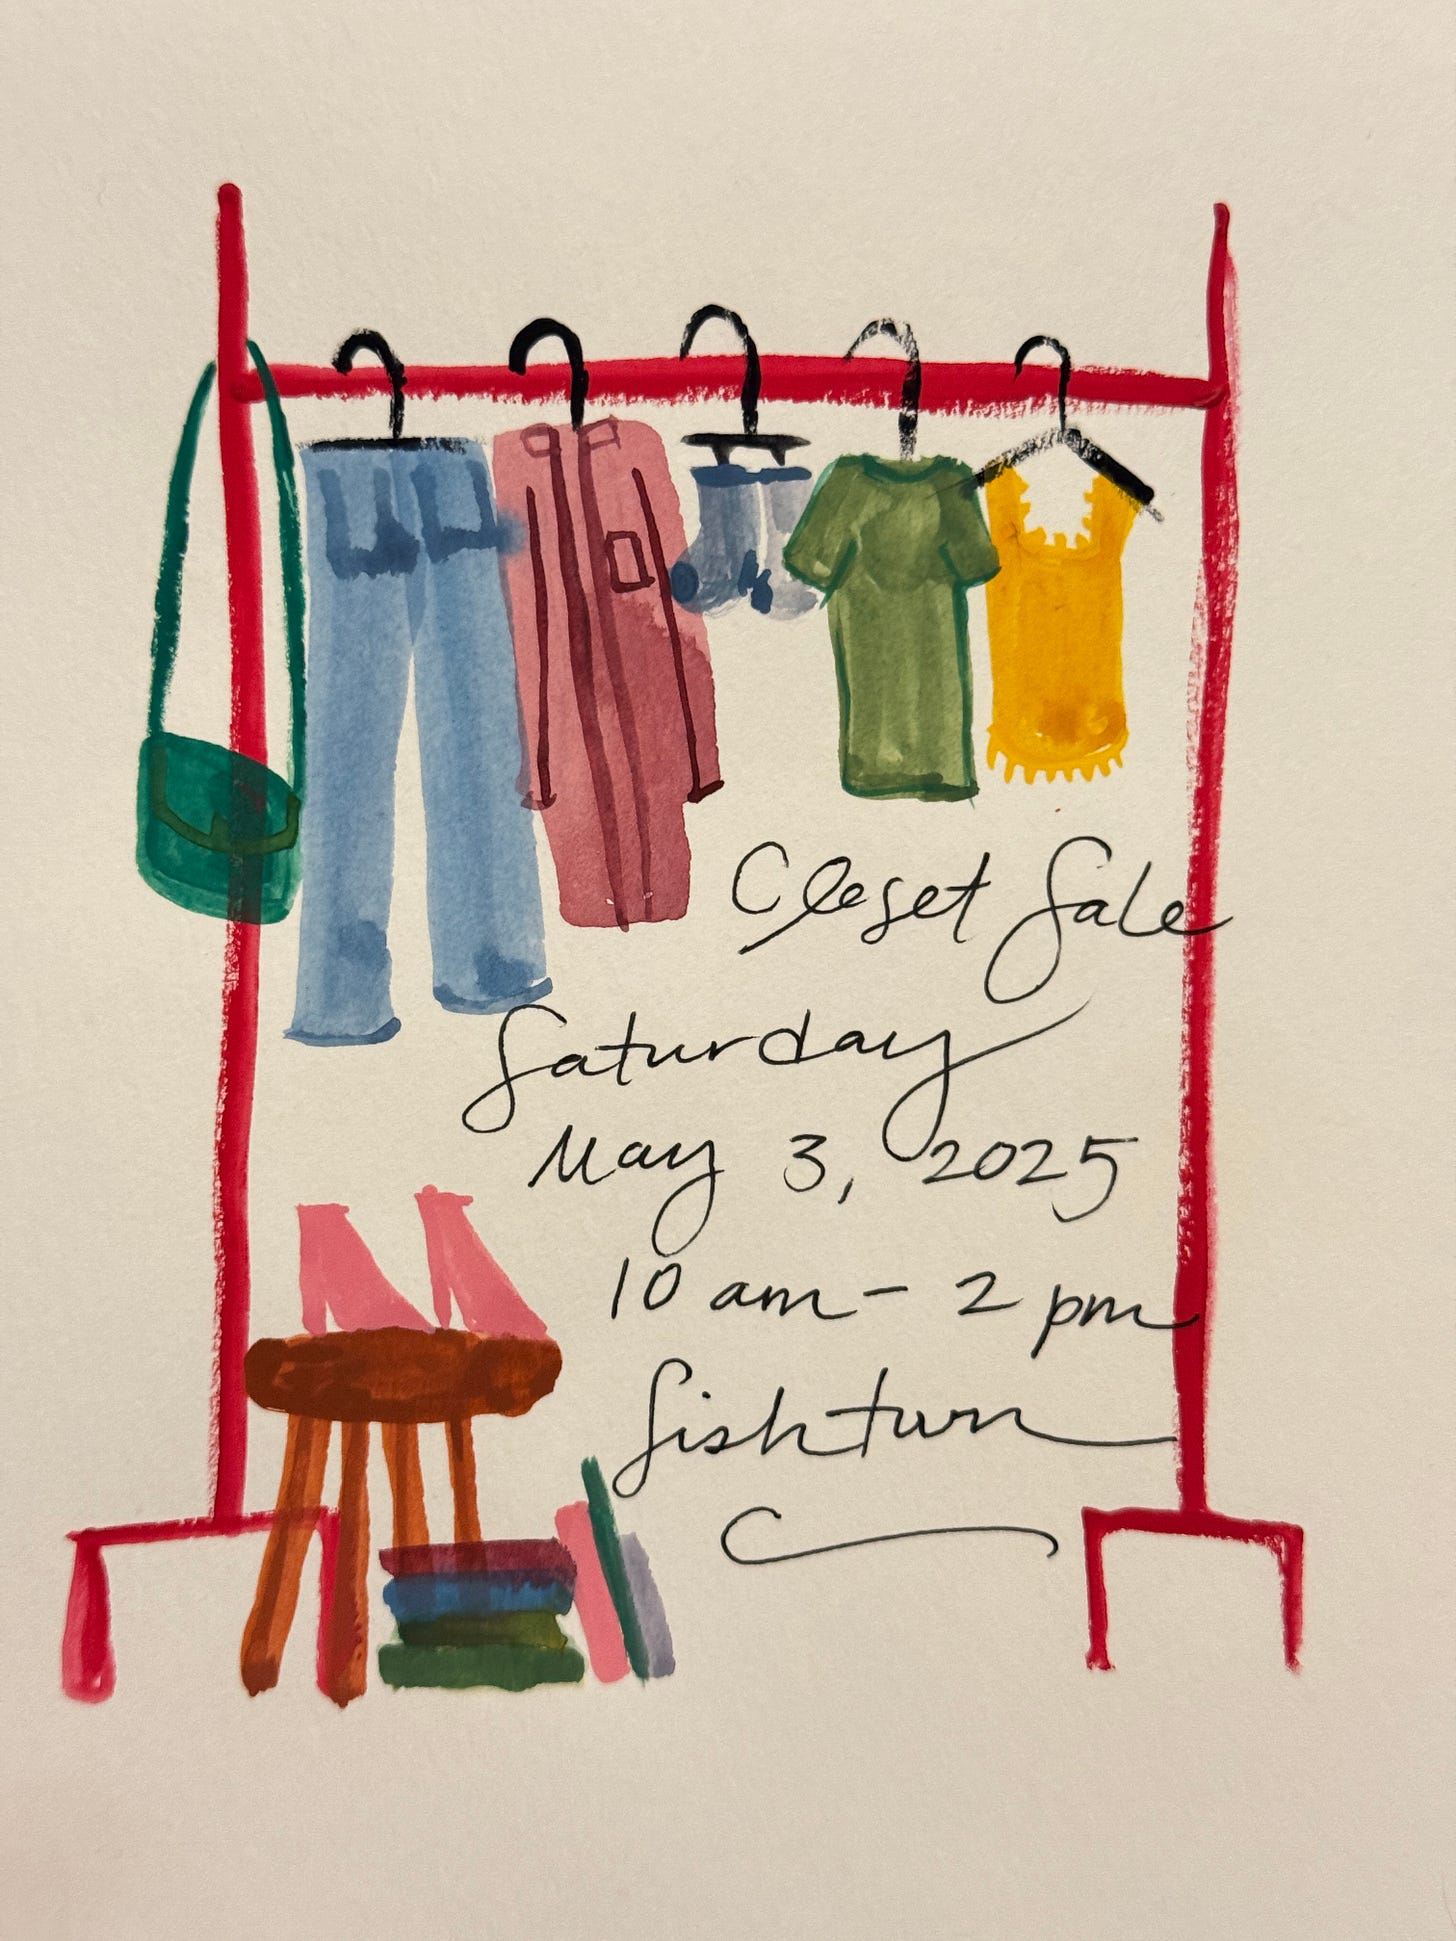 Closet Sale
Saturday
May 3, 2025
10 am - 2 pm
fishtwn